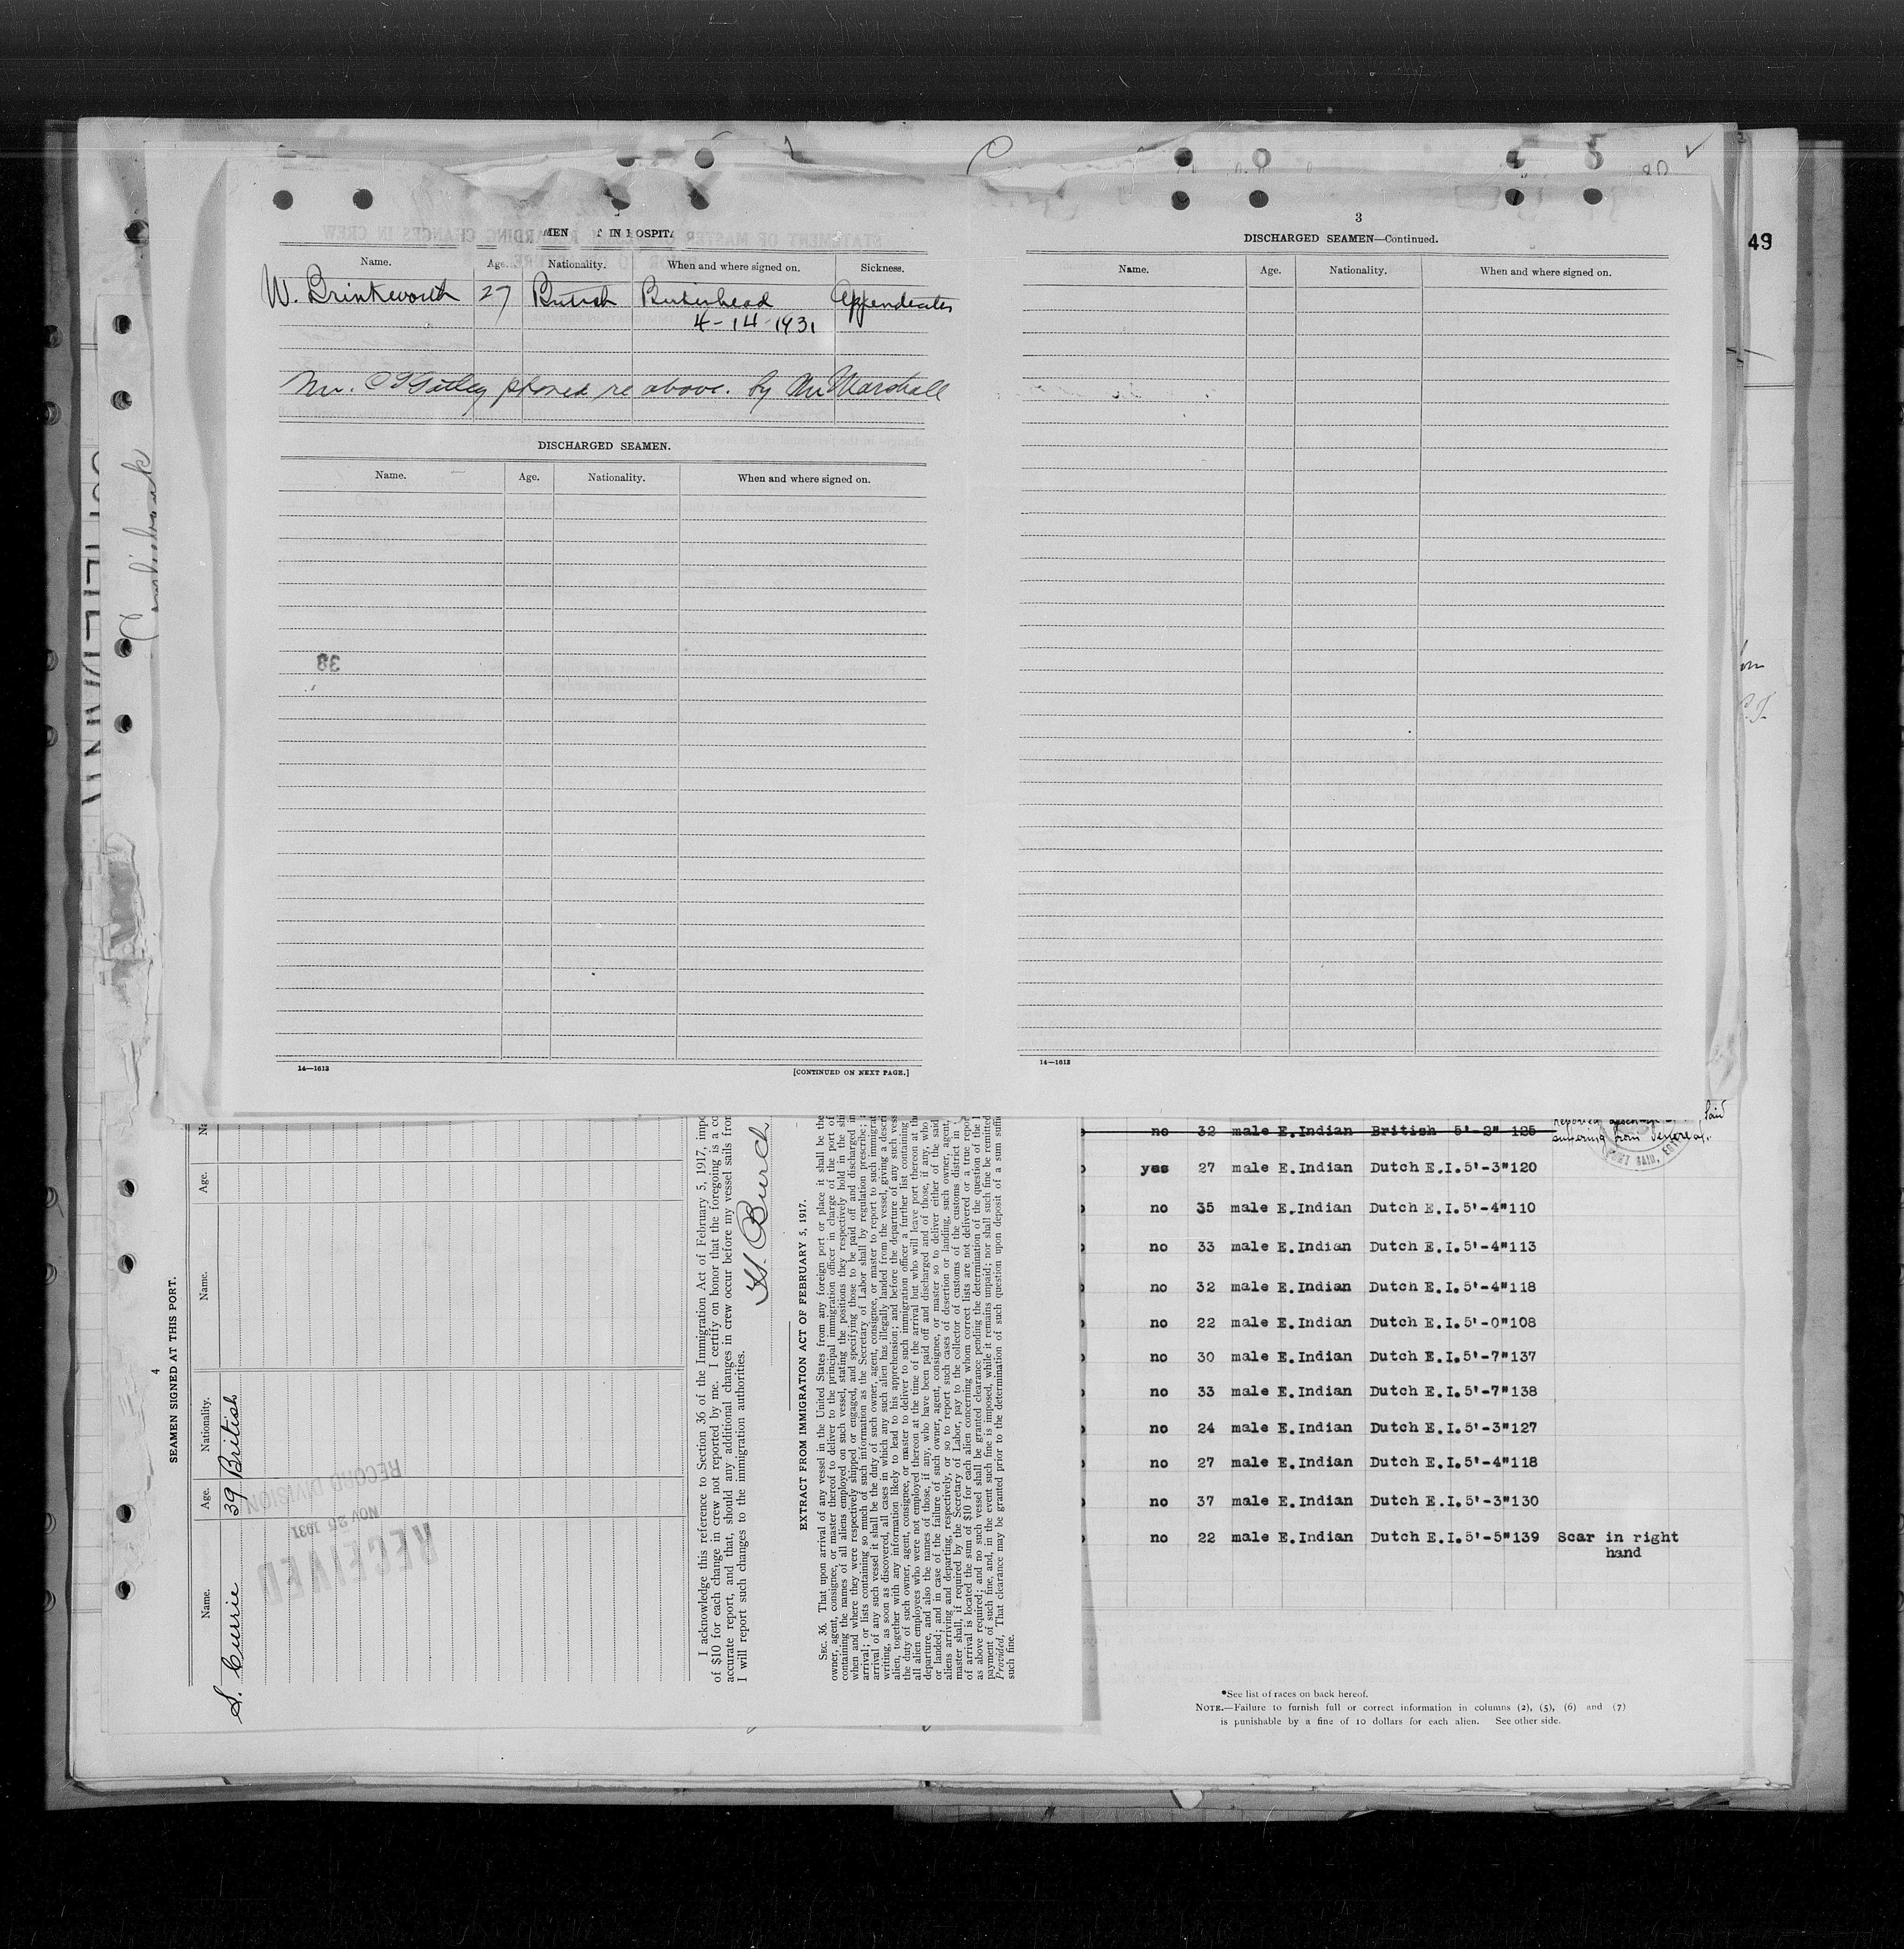 49
MEN IN HOSPITA
Name. Age. Nationality. When and where signed on. Sickness.
W. Brinkworth 27 British Birkenhead Appendecites
4-14-1931
Mr. phoned re above. by Mr Marshall
DISCHARGED SEAMEN.
Name. Age. Nationality. When and where signed on.
38
14—1613 [CONTINUED ON NEXT PAGE.]
3
DISCHARGED SEAMEN—Continued.
Name. Age. Nationality. When and where signed on.
14—1613
4
SEAMEN SIGNED AT THIS PORT.
Name. Age. Nationality. Name. Age. Na
S. Currie 39 British
RECEIVED
NOV 25 1931
RECORD DIVISION
I acknowledge this reference to Section 36 of the Immigration Act of February 5, 1917, impo
of $10 for each change in crew not reported by me. I certify on honor that the foregoing is a co
accurate report, and that, should any additional changes in crew occur before my vessel sails from
I will report such changes to the immigration authorities.
H. Burch
EXTRACT FROM IMMIGRATION ACT OF FEBRUARY 5, 1917.
SEC. 36. That upon arrival of any vessel in the United States from any foreign port or place it shall be the
owner, agent, consignee, or master thereof to deliver to the principal immigration officer in charge of the port of
containing the names of all aliens employed on such vessel, stating the positions they respectively hold in the shi
when and where they were respectively shipped or engaged, and specifying those to be paid off and discharged in
arrival; or lists containing so much of such information as the Secretary of Labor shall by regulation prescribe;
arrival of any such vessel it shall be the duty of such owner, agent, consignee, or master to report to such immigrat
writing, as soon as discovered, all cases in which any such alien has illegally landed from the vessel, giving a descri
alien, together with any information likely to lead to his apprehension; and before the departure of any such vess
the duty of such owner, agent, consignee, or master to deliver to such immigration officer a further list containing
all alien employees who were not employed thereon at the time of the arrival but who will leave port thereon at the
departure, and also the names of those, if any, who have been paid off and discharged and of those, if any, who
or landed; and in case of the failure of such owner, agent, consignee, or master so to deliver either of the said
aliens arriving and departing, respectively, or so to report such cases of desertion or landing, such owner, agent,
master shall, if required by the Secretary of Labor, pay to the collector of customs of the customs district in
of arrival is located the sum of $10 for each alien concerning whom correct lists are not delivered or a true repor
as above required; and no such vessel shall be granted clearance pending the determination of the question of the l
payment of such fine, and, in the event such fine is imposed, while it remains unpaid; nor shall such fine be remitted
Provided, That clearance may be granted prior to the determination of such question upon deposit of a sum suffic
such fine.
no 32 male E.Indian British 5'-2" 125
suffering from Venereal.
yes 27 male E.Indian Dutch E.I. 5'-3" 120
no 35 male E.Indian Dutch E.I. 5'-4" 110
no 33 male E.Indian Dutch E.I. 5'-4" 113
no 32 male E.Indian Dutch E.I. 5'-4" 118
no 22 male E.Indian Dutch E.I. 5'-0" 108
no 30 male E.Indian Dutch E.I. 5'-7" 137
no 33 male E.Indian Dutch E.I. 5'-7" 138
no 24 male E.Indian Dutch E.I. 5'-3" 127
no 27 male E.Indian Dutch E.I. 5'-4" 118
no 37 male E.Indian Dutch E.I. 5'-3" 130
no 22 male E.Indian Dutch E.I. 5'-5" 139 Scar in right
hand
*See list of races on back hereof.
NOTE.—Failure to furnish full or correct information in columns (2), (5), (6) and (7)
is punishable by a fine of 10 dollars for each alien. See other side.